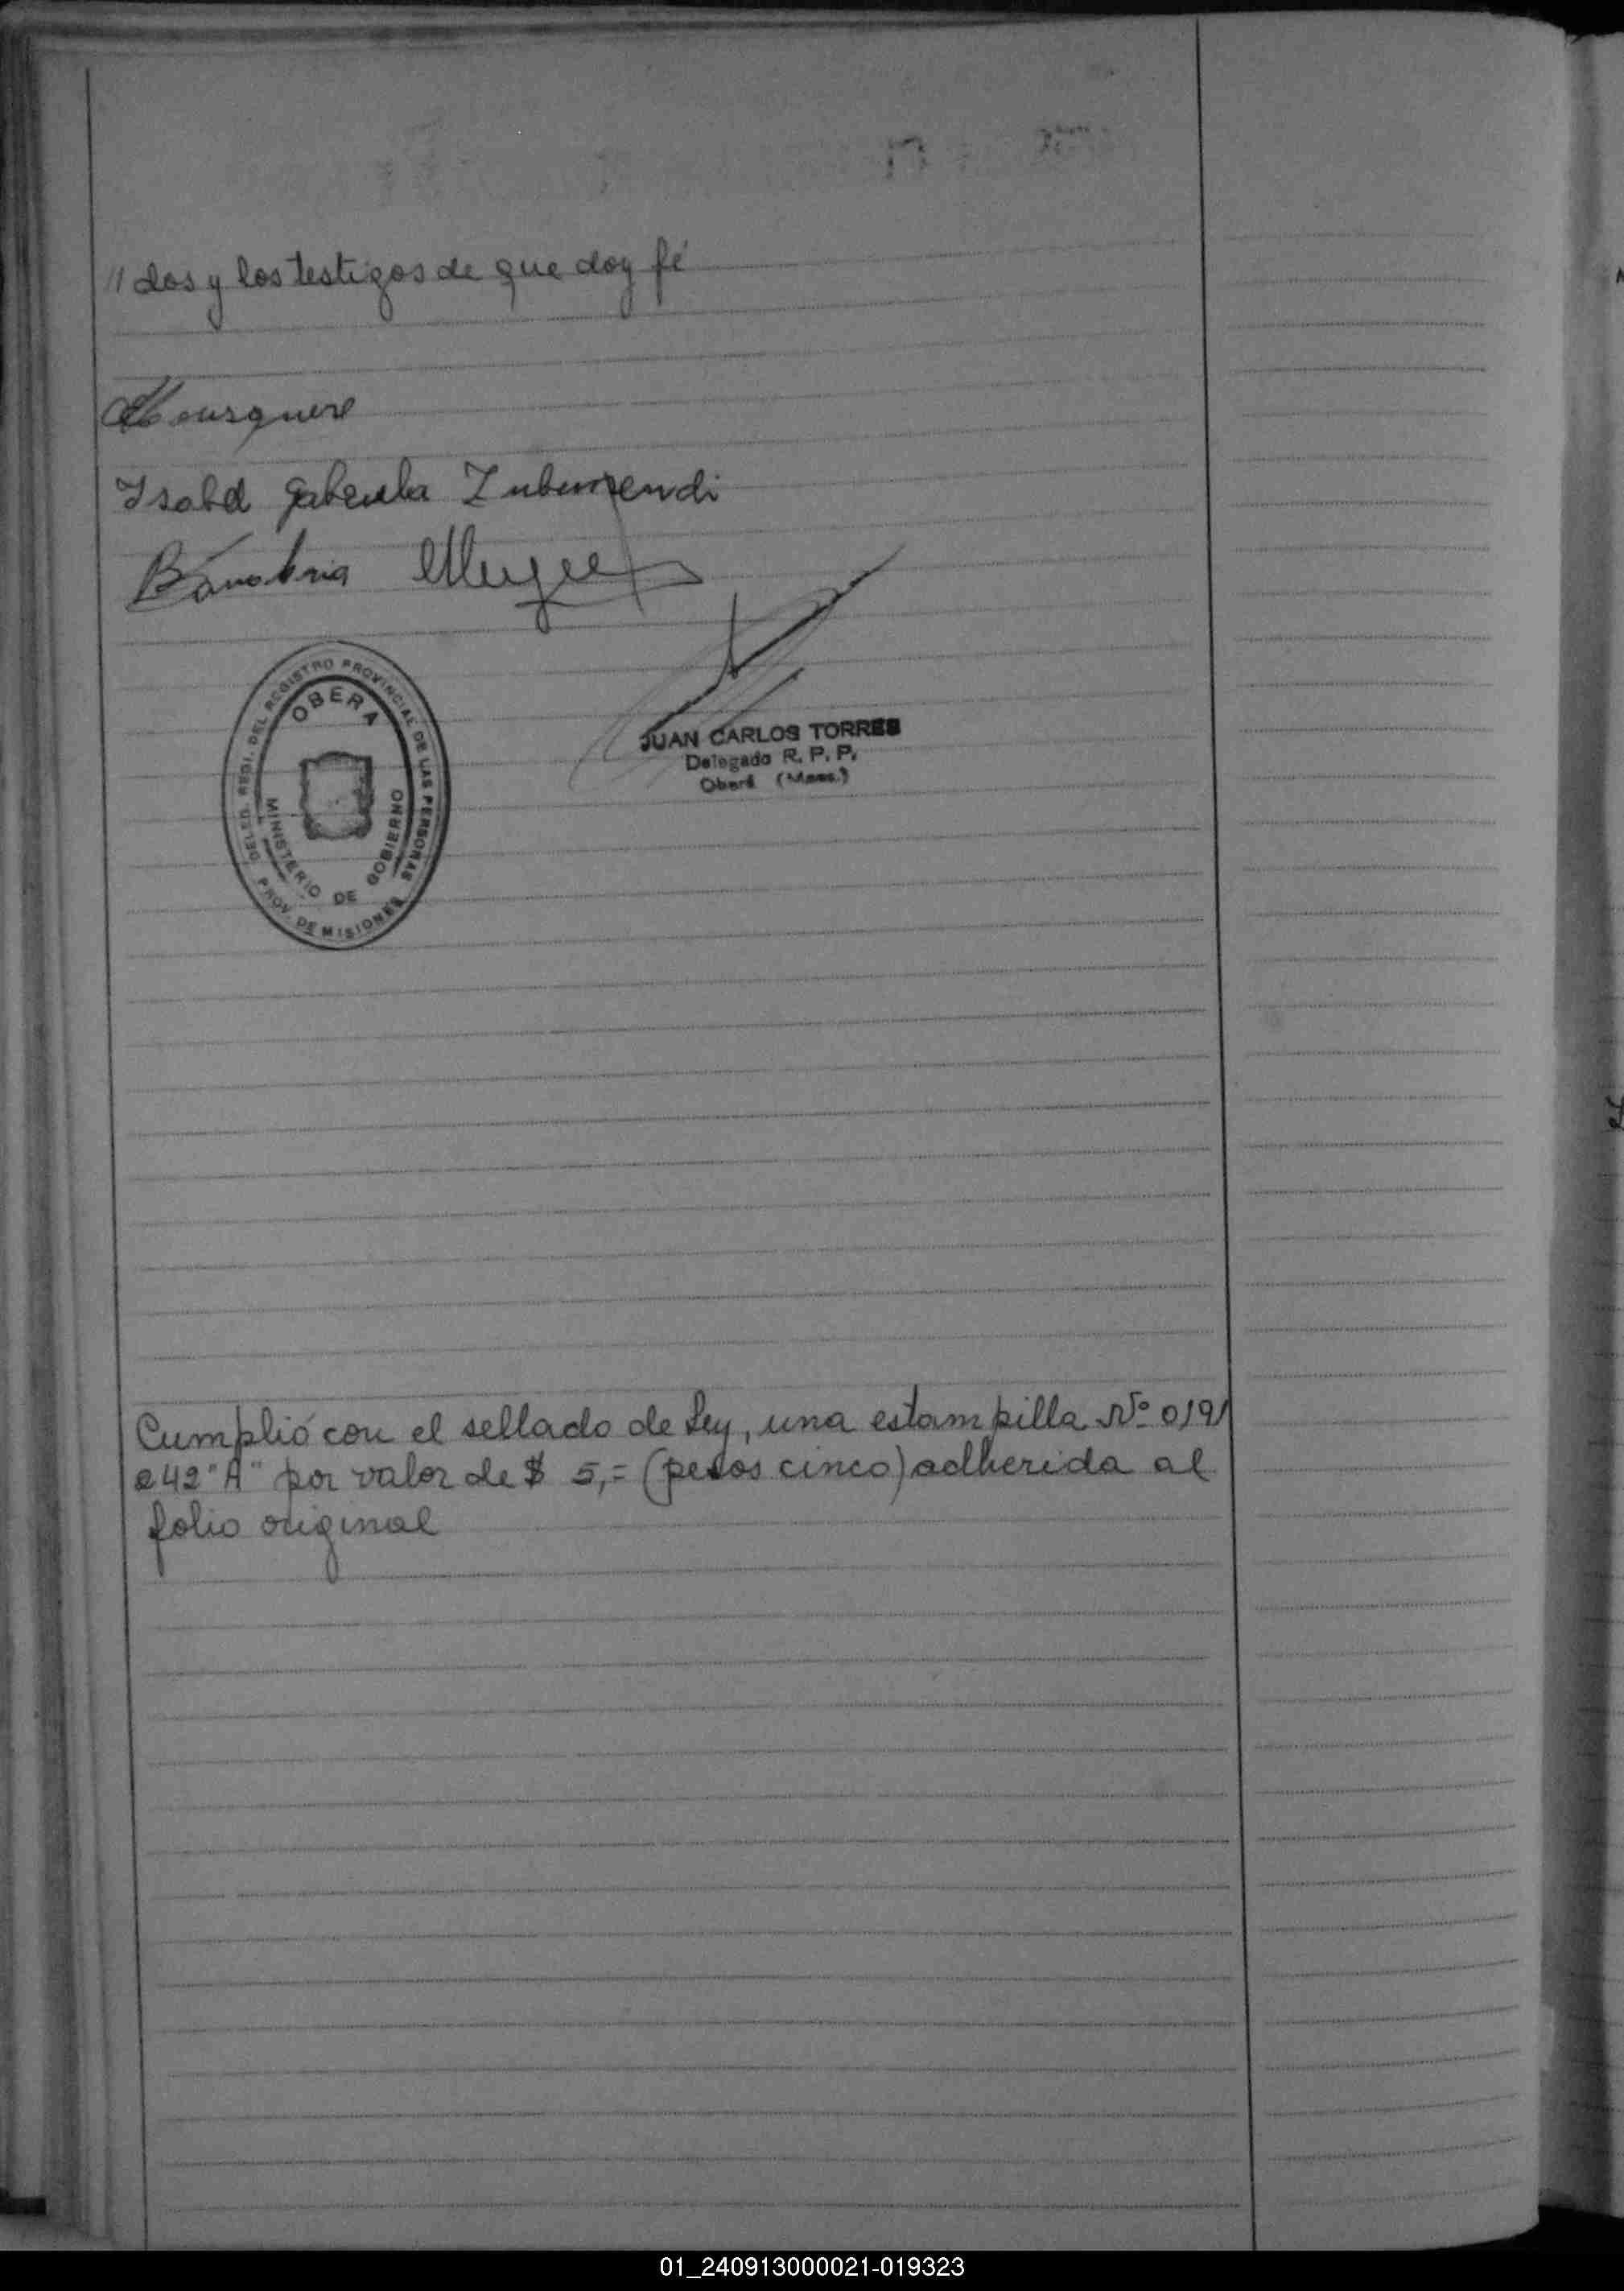 // dos y los testigos de que doy fé
Isabel Zubimendi
OBERA
DELEG. REGI. DEL REGISTRO PROVINCIAL DE LAS PERSONAS
MINISTERIO DE GOBIERNO
PROV. DE MISIONES
JUAN CARLOS TORRES
Delegado R. P. P.
Oberá (Mnes.)
Cumplió con el sellado de Ley, una estampilla Nº 0191
242 "A" por valor de $ 5,= (pesos cinco) adherida al
folio original
01_240913000021-019323